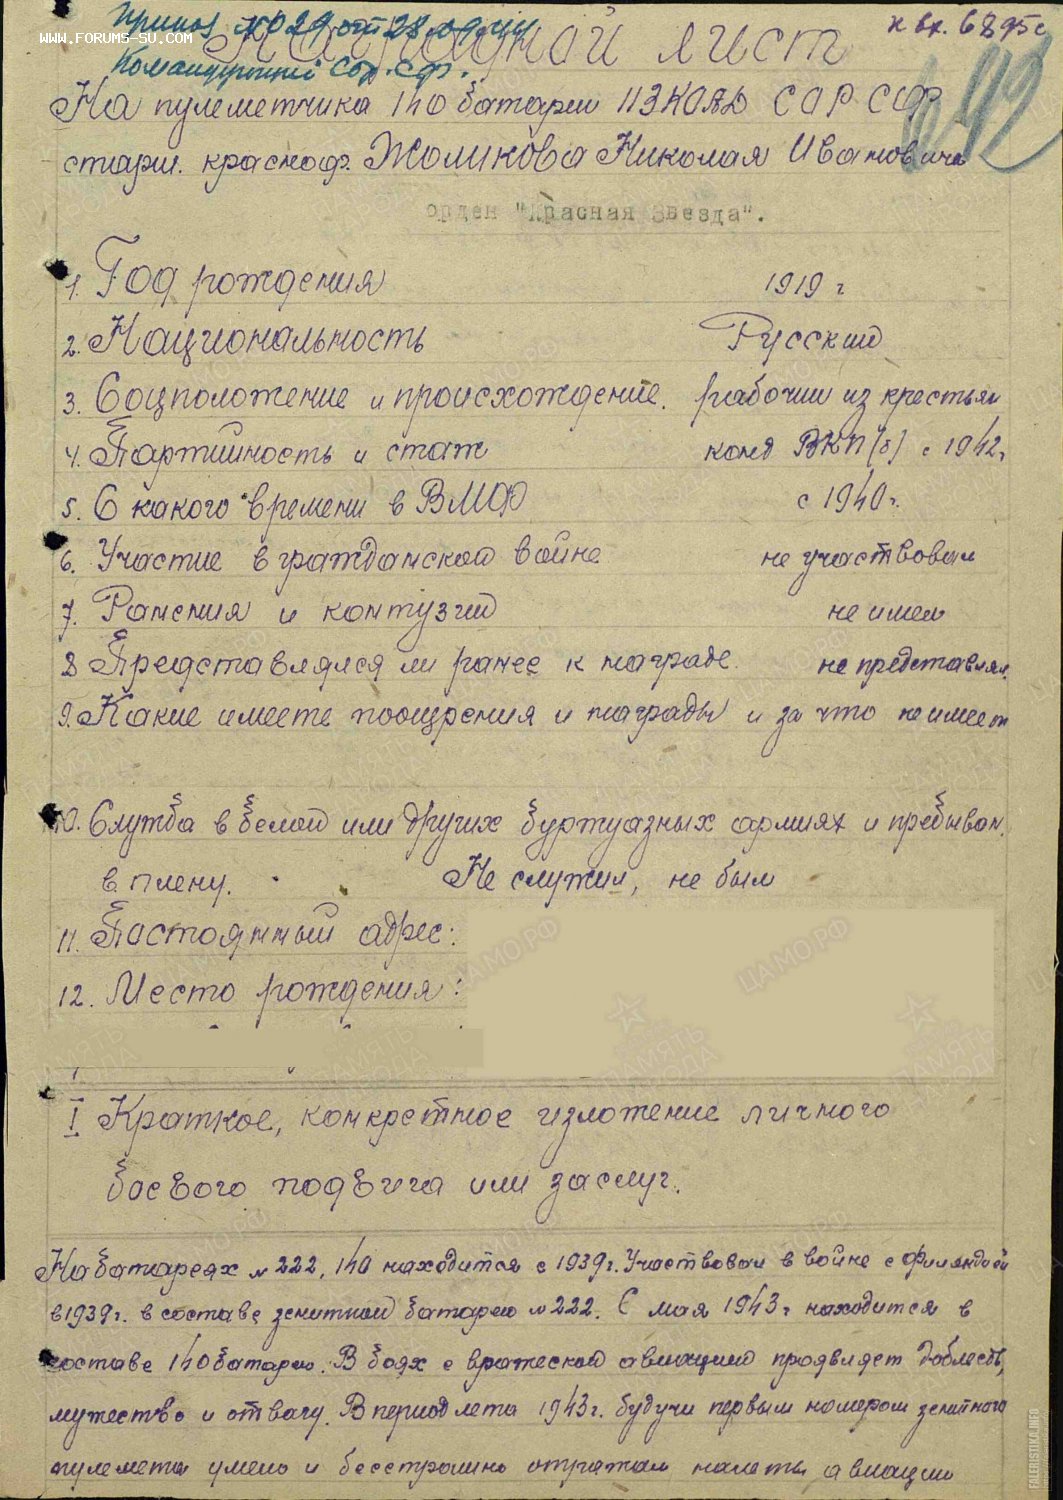 Приказ № 29 от 28.09.44
к вх. 6895с
WWW.FORUMS-SU.COM
Наградной лист
Командующий
На пулеметчика 140 батареи СОР
старш. красноф. Жоликова Николая Ивановича
орден "Красная Звезда".
1. Год рождения 1919 г
2. Национальность Русский
3. Соцположение и происхождение. рабочий из крестьян
4. Партийность и стаж канд ВКП(б) с 1942г
5. С какого времени в ВМФ с 1940г.
6. Участие в гражданской войне не участвовал
7. Ранения и контузии не имел
8 Представлялся ли ранее к награде. не представлял.
9. Какие имеете поощрения и награды и за что не имеет
10. Служба в белой или других буржуазных армиях и пребыван.
в плену. Не служил, не был
11. Постоянный адрес:
12. Место рождения:
I Краткое, конкретное изложение личного
боевого подвига или заслуг.
На батареях № 222, 140 находится с 1939г. Участвовал в войне с Финляндией
в 1939г. в составе зенитной батареи № 222. С мая 1943г находится в
составе 140 батареи. В боях с вражеской авиацией проявляет доблесть,
мужество и отвагу. В период лета 1943г. будучи первым номером зенитного
пулемета умело и бесстрашно отражал налеты авиации
FALERISTIKA.INFO